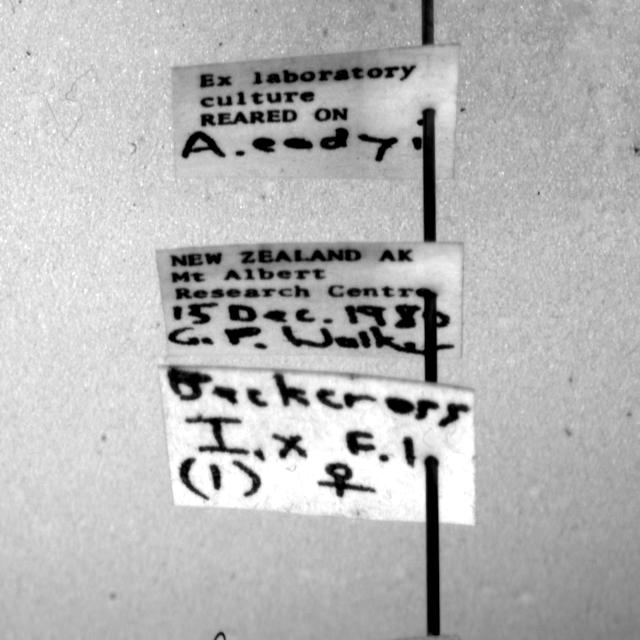 Ex laboratory
culture
REARED ON
A. eadyi
NEW ZEALAND AK
Mt Albert
Research Centre
15 Dec. 198
G. P. Walker
Backcross
I. x F.1
(1) ♀